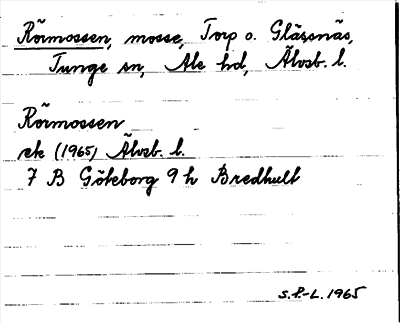 Rörmossen, mosse, Torp o. Glässnäs,
Tunge sn, Ale hd, Älvsb. l.
Rörmossen
ek (1965) Älvsb. l.
7 B Göteborg 9 h Bredhult
S.P.-L. 1965